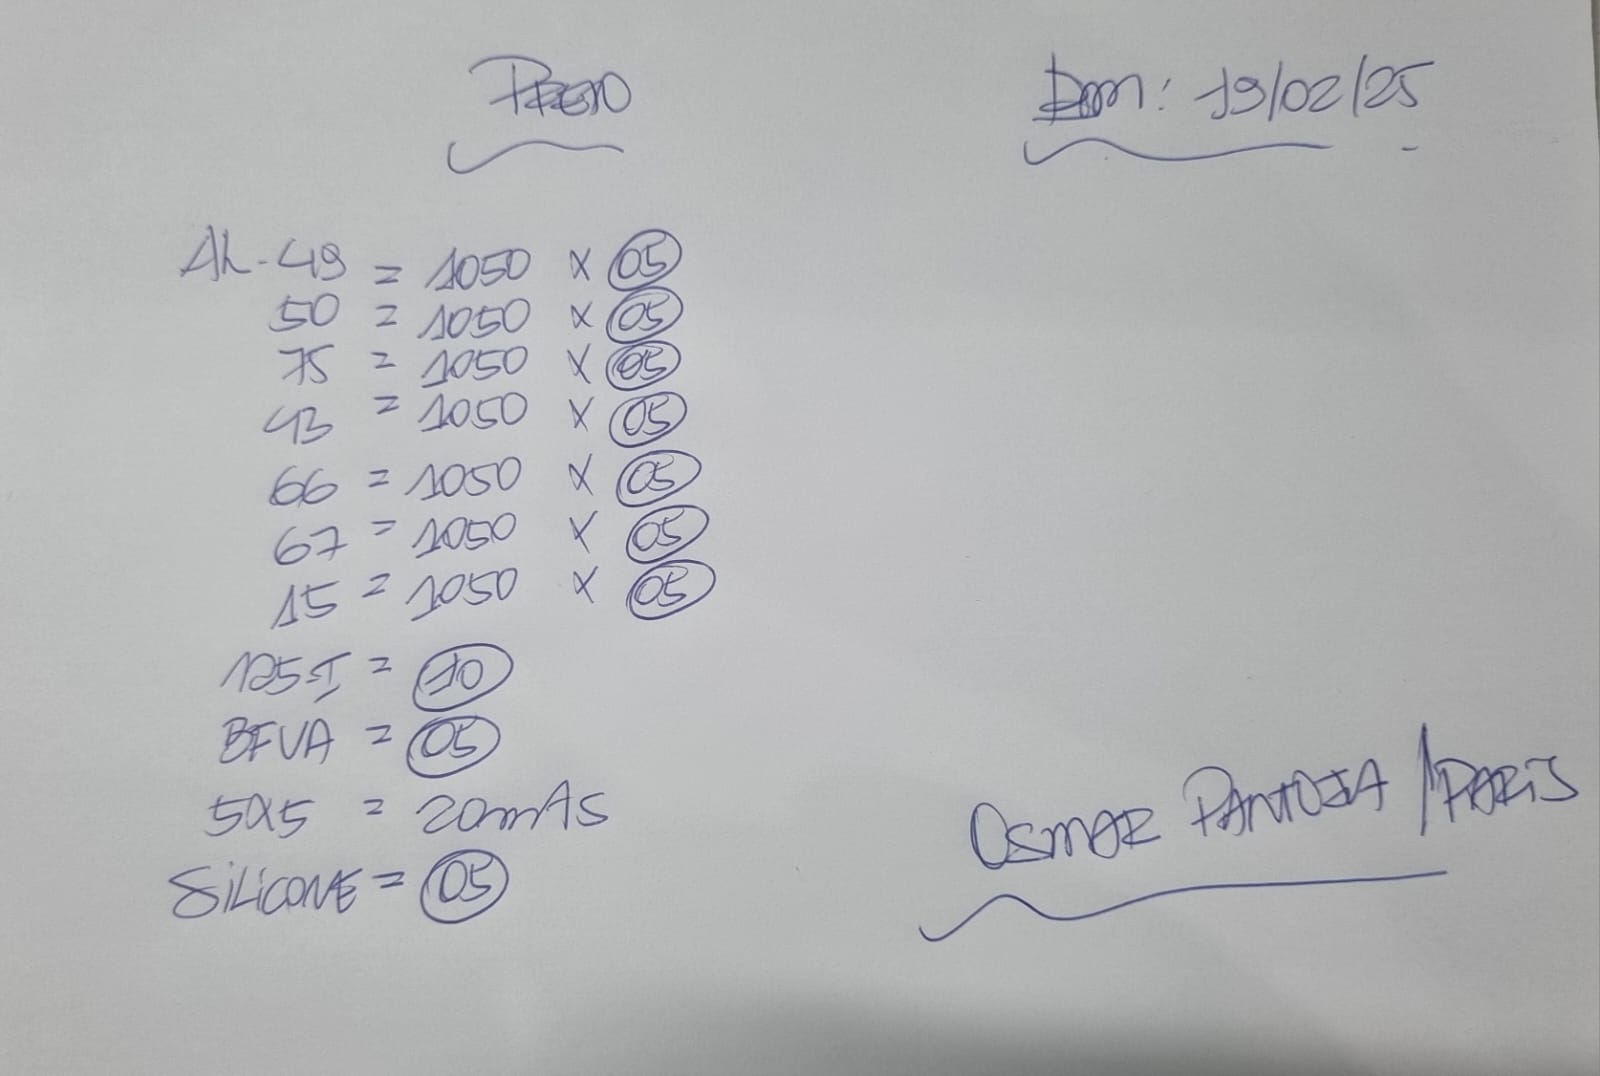 19/02/25
AL-49 = 1050 x 05
50 = 1050 x 05
75 = 1050 x 05
43 = 1050 x 05
66 = 1050 x 05
67 = 1050 x 05
15 = 1050 x 05
125-I = 10
BFVA = 05
5x5 = 20mAS
SiLiCONE = 05
OSMAR PANTOJA / PARIS